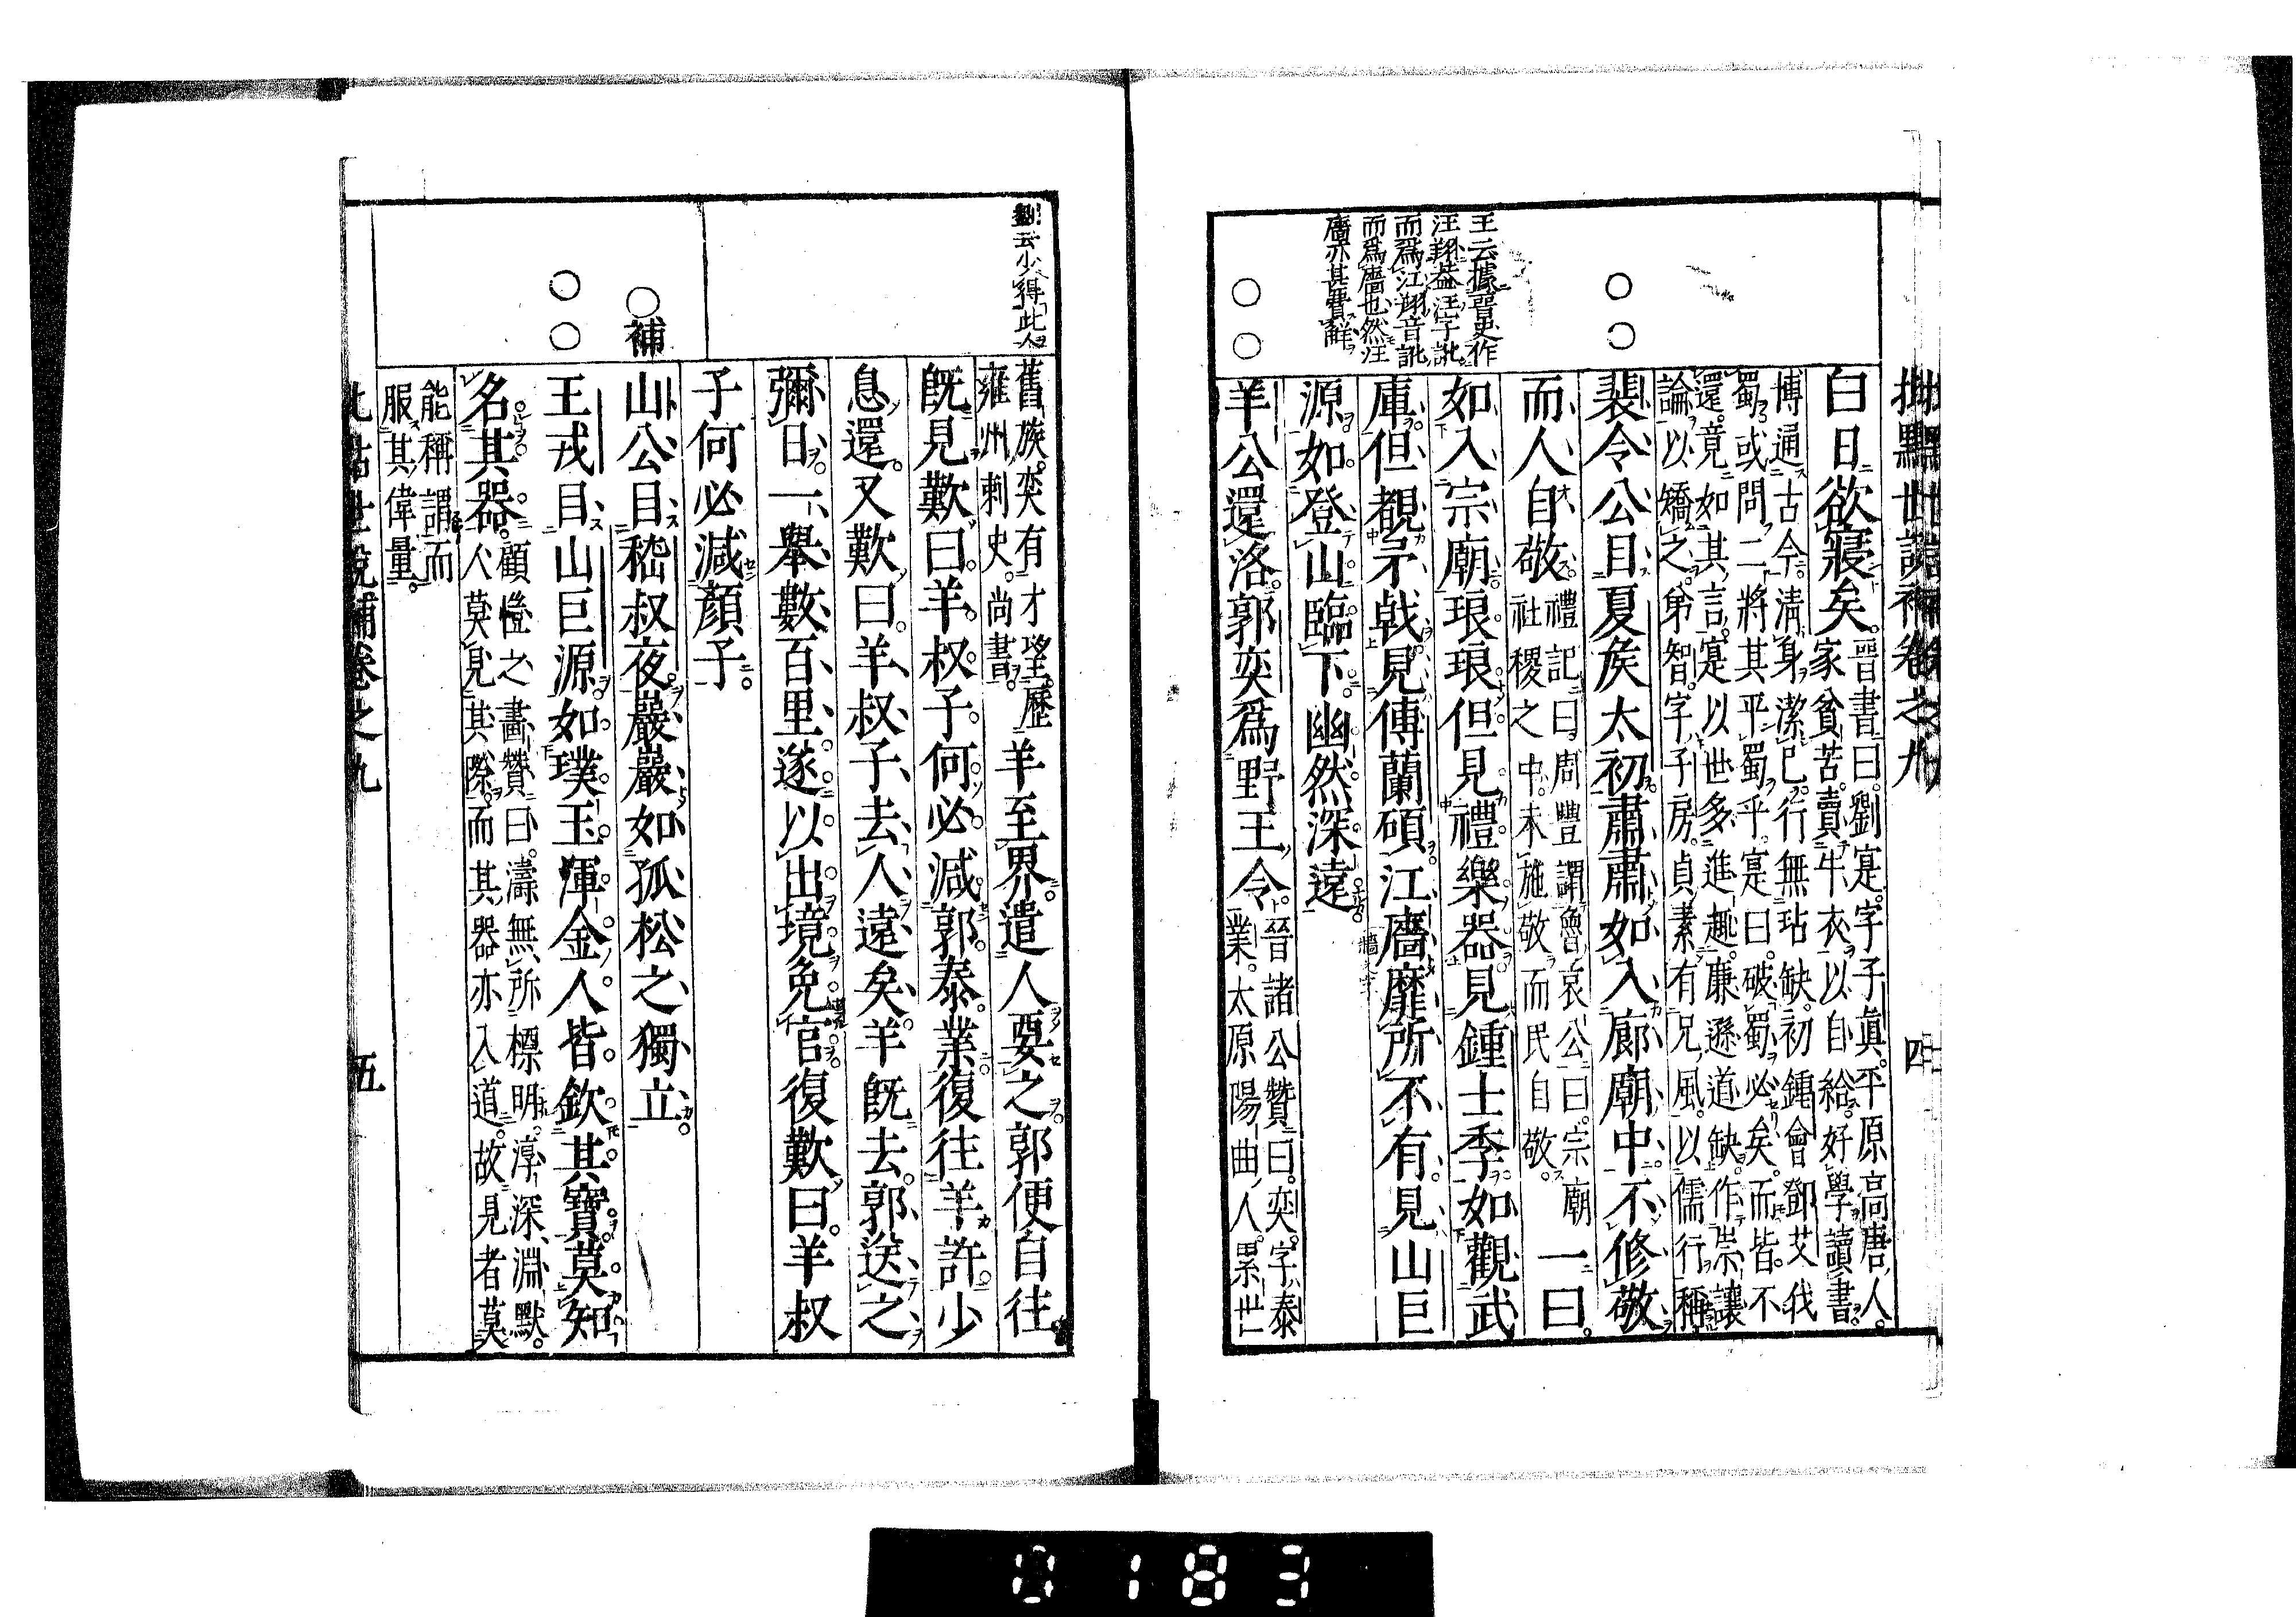 批點世說補卷之九
四
王云據晉史作
汪翔蓋汪字訛
而爲江翔音訛
而爲廧也然汪
廧亦甚費解
白日欲寢矣
晉書曰劉寔字子眞平原高唐人
家貧苦賣牛衣以自給好學讀書
博通古今清身潔已行無玷缺初鍾會鄧艾伐
蜀或問二將其平蜀乎寔曰破蜀必矣而皆不
還竟如其言寔以世多進趣廉遜道缺作崇讓
論以矯之弟智字子房貞素有兄風以儒行稱
裴令公目夏矦太初肅肅如入廊廟中不修敬
而人自敬
禮記曰周豐謂魯哀公曰宗廟
社稷之中未施敬而民自敬
一曰
如入宗廟琅琅但見禮樂器見鍾士季如觀武
庫但覩矛戟見傅蘭碩江廧靡所不有見山巨
源如登山臨下幽然深遠
羊公還洛郭奕爲野王令
晉諸公贊曰奕字泰
業太原陽曲人累世
劉云少得此人
舊族奕有才望歷
雍州刺史尚書
羊至界遣人要之郭便自往
旣見歎曰羊叔子何必減郭泰業復往羊許少
息還又歎曰羊叔子去人遠矣羊旣去郭送之
彌日一舉數百里遂以出境免官復歎曰羊叔
子何必減顏子
○補
山公目嵇叔夜巖巖如孤松之獨立
王戎目山巨源如璞玉渾金人皆欽其寶莫知
名其器
顧愷之畫贊曰濤無所標明淳深淵默
人莫見其際而其器亦入道故見者莫
能稱謂而
服其偉量
批點世說補卷之九
五
0183